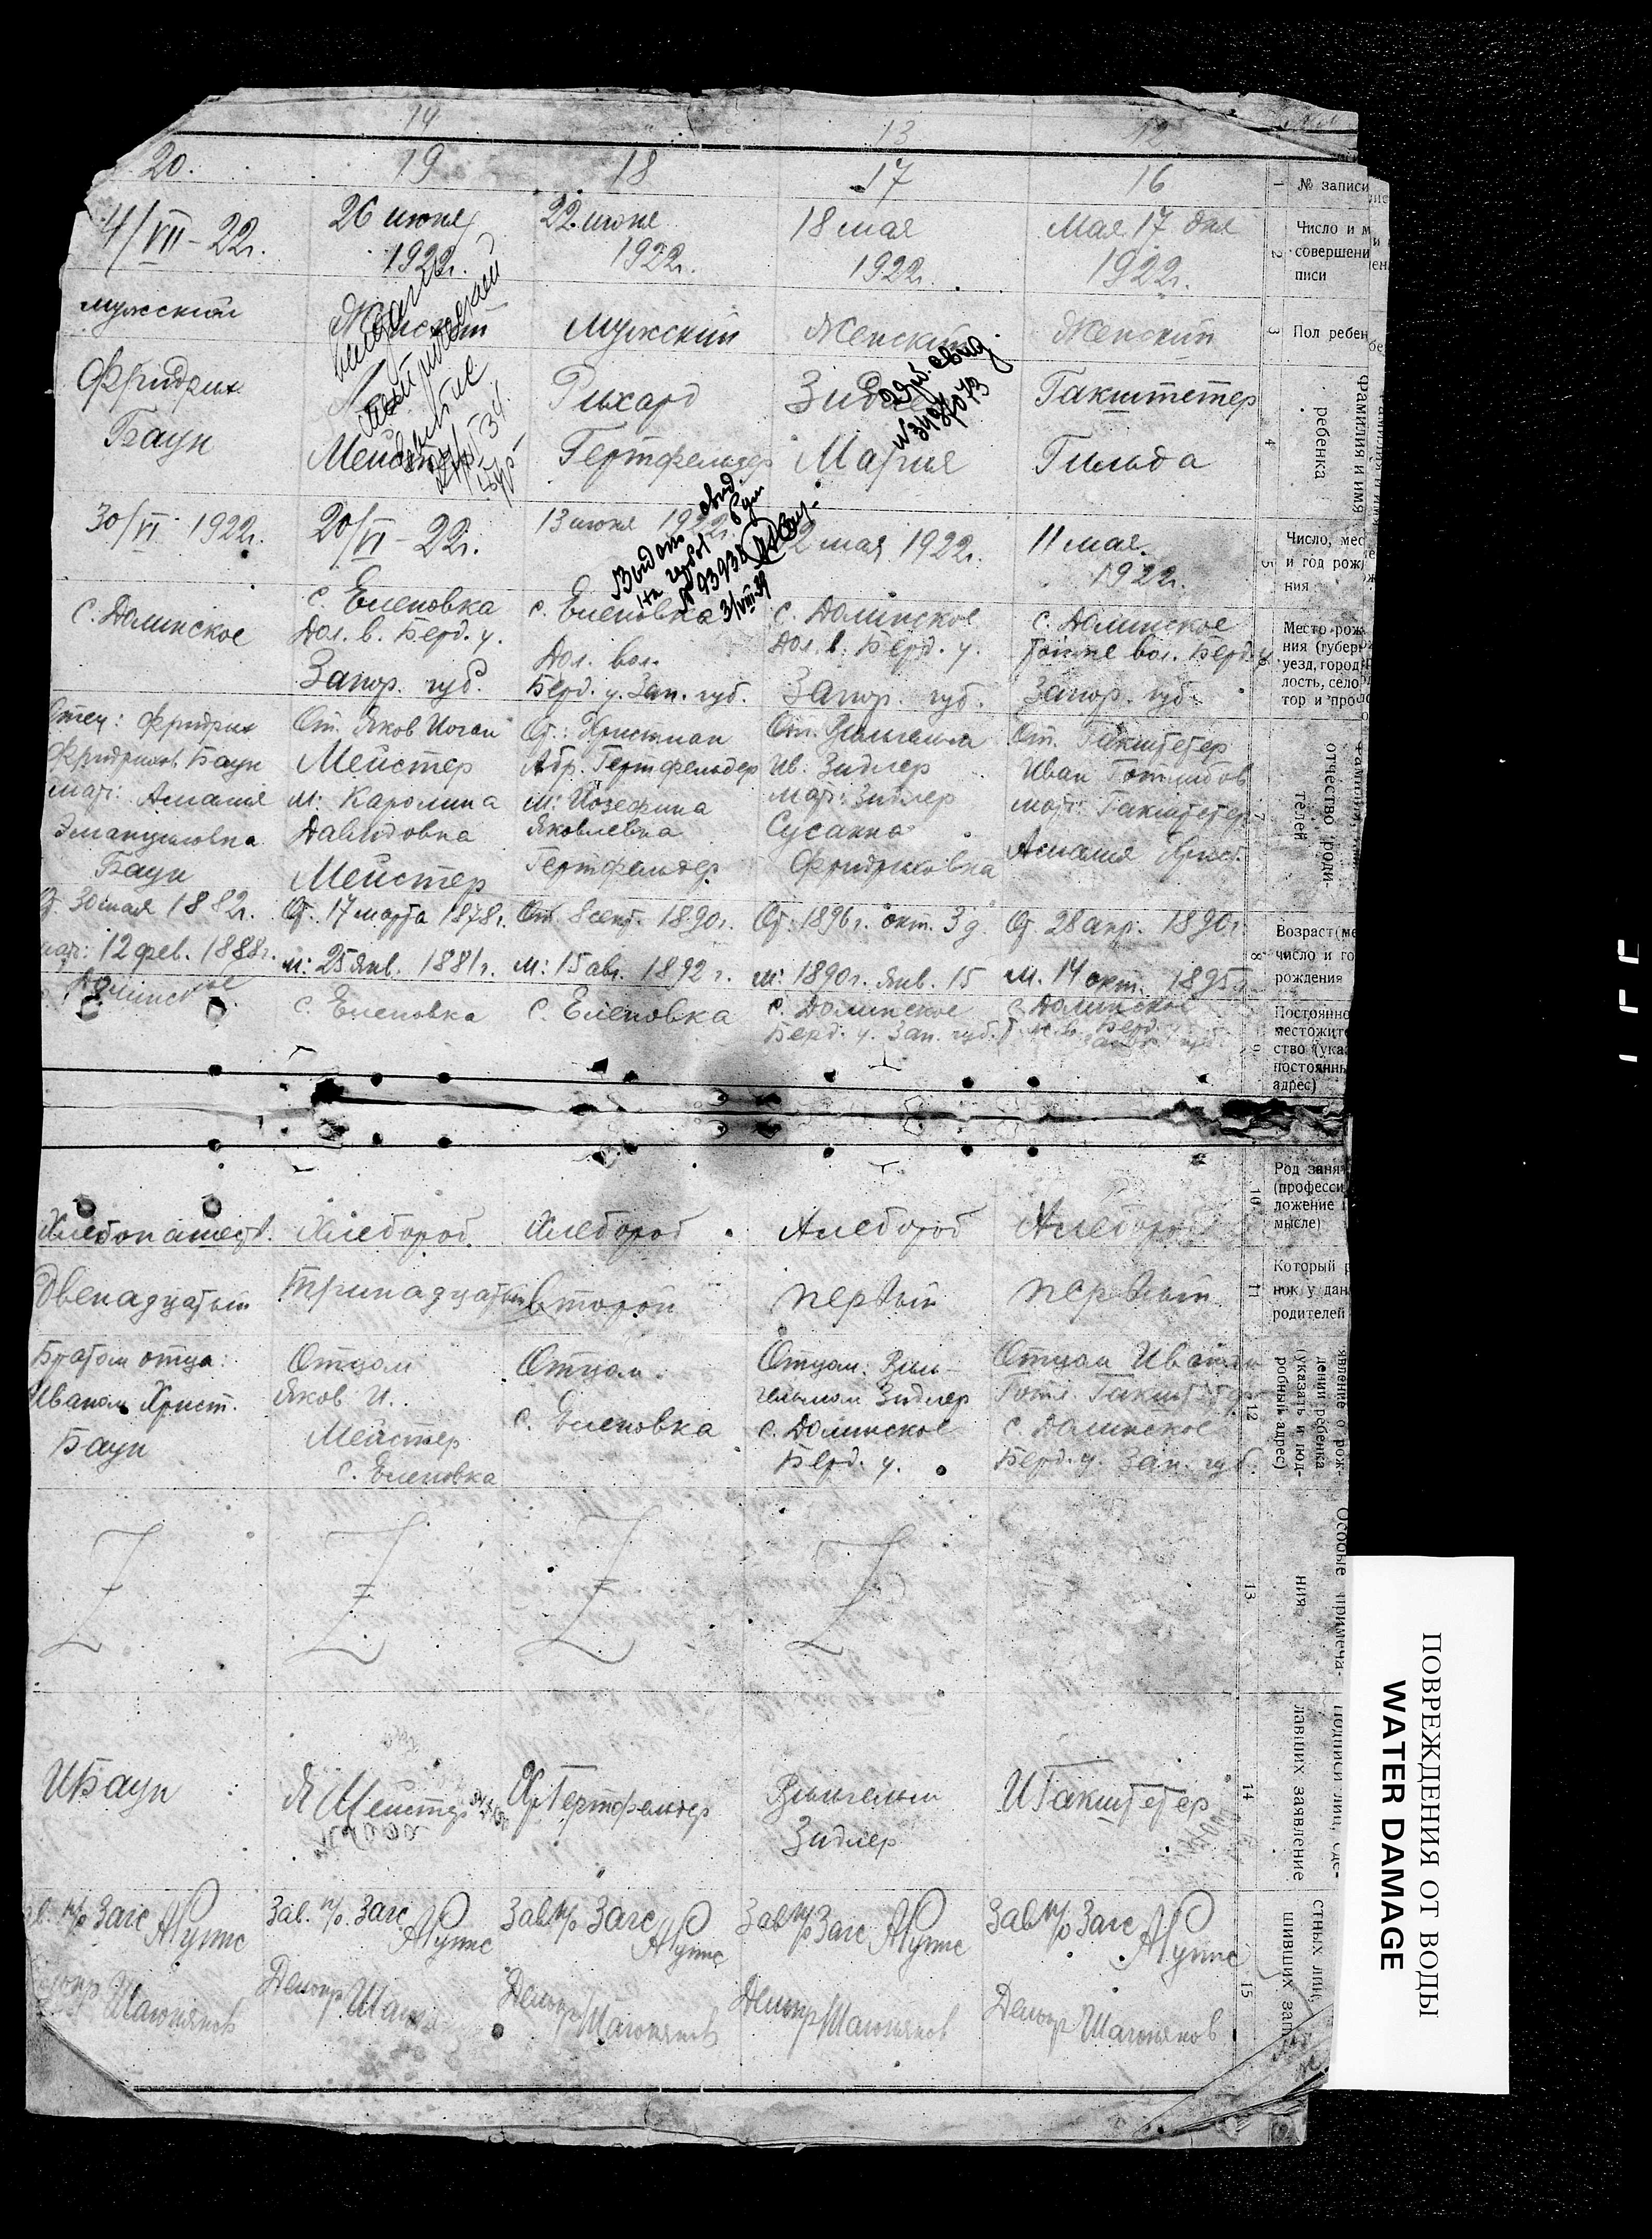 14
13
12
20.
19
18
17
16
1
№ записи
4/VII – 22г.
26 июня
1922г.
22 июня
1922г.
18 мая
1922г.
Мая 17 дня
1922г.
2
Число и м
совершени
писи
мужский
Женский
Мужский
Женский
Женский
3
Пол ребен
Фридрих
Баун
Мейстер
Рихард
Гертфельдер
Мария
Гакштетер
Гильда
4
Фамилия и имя
ребенка
№ 3497073
30/VI 1922г.
20/VI – 22г.
13 июня 1922г.
2 мая 1922г.
11 мая
1922г.
5
Число, мес
и год рож
ния
Выдано свид.
3/VIII-39
с. Долинское
с. Еленовка
Дол. в. Берд. у.
Запор. губ.
с. Еленовка
Дол. вол.
Берд. у. Зап. губ.
с. Долинское
Дол. в. Берд. у.
Запор. губ.
с. Долинское
вол. Берд. у
Запор. губ.
6
Место рож
ния (губерн
уезд, город
лость, село
тор и про
Отец: Фридрих
Фридрихов. Баун
мат: Амалия
Эмануиловна
Баун
От. Яков Иоган
Мейстер
м: Каролина
Давидовна
Мейстер
От.: Христиан
Абр. Гертфельдер
м: Йозефина
Яковлевна
Гертфельдер.
От. Вильгельм
Ив. Зидлер
мат: Зидлер
Сусанна
Фридриховна
От. Гакштетер
Иван Готлибов
мат: Гакштетер
Амалия Христ.
7
отчество роди-
телей
От. 30 мая 1882г.
мат: 12 фев. 1888г.
От. 17 марта 1878г.
м: 25 Янв. 1881г.
От. 8 сент. 1890г.
м: 15 авг. 1892г.
От. 1896г. окт. 3 д.
м: 1890г. Янв. 15
От. 28 апр. 1890г.
м. 14 окт. 1895г.
8
Возраст (ме
число и го
рождения
Долинское
с. Еленовка
с. Еленовка
с. Долинское
Берд. у. Зап. губ.
с. Долинское
9
Постоянно
местожите
ство (ука
постоянны
адрес)
Хлебопашест.
Хлебород
Хлебород
Хлебород
Хлебород
10
Род заня
(професси
ложение
мысле)
Двенадцатый
Тринадцатый
Второй
первый
первый
11
Который р
нок у дан
родителей
Братом отца:
Иваном Христ.
Баун
Отцом
Яков И.
Мейстер
с. Еленовка
Отцом.
с. Еленовка
Отцом: Виль-
гельмом Зидлер
с. Долинское
Берд. у.
Отцом Иваном
Готл. Гакштетер
с. Долинское
Берд. у. Зап. губ.
12
явление о рож-
дении ребенка
(указать и под-
робный адрес)
Z
Z
Z
Z
13
Особые примеча-
ния
ИБаун
Я Мейстер
Хр Гертфельдер
Вильгельм
Зидлер
И Гакштетер
14
Подписи лиц, сде-
лавших заявление
Зав. п/о Загс
Зав. п/о Загс
Зав п/о Загс
Зав п/о Загс
Зав п/о Загс
Делопр
Делопр
Делопр
Делопр
15
стных лиц,
шивших зап
ПОВРЕЖДЕНИЯ ОТ ВОДЫ
WATER DAMAGE